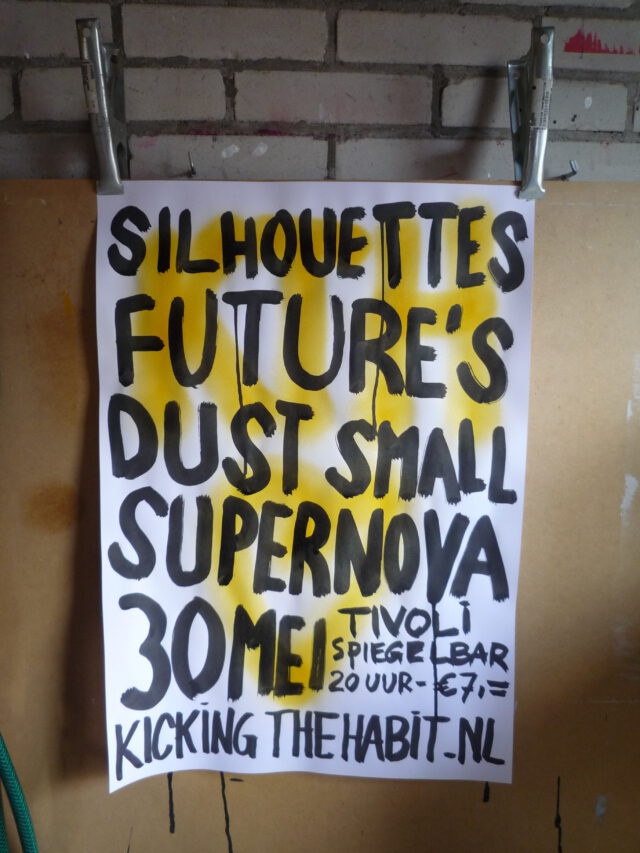 SILHOUETTES
FUTURE'S
DUST SMALL
SUPERNOVA
30 MEI
TIVOLI
SPIEGELBAR
20 UUR - €7,=
KICKING THE HABIT.NL